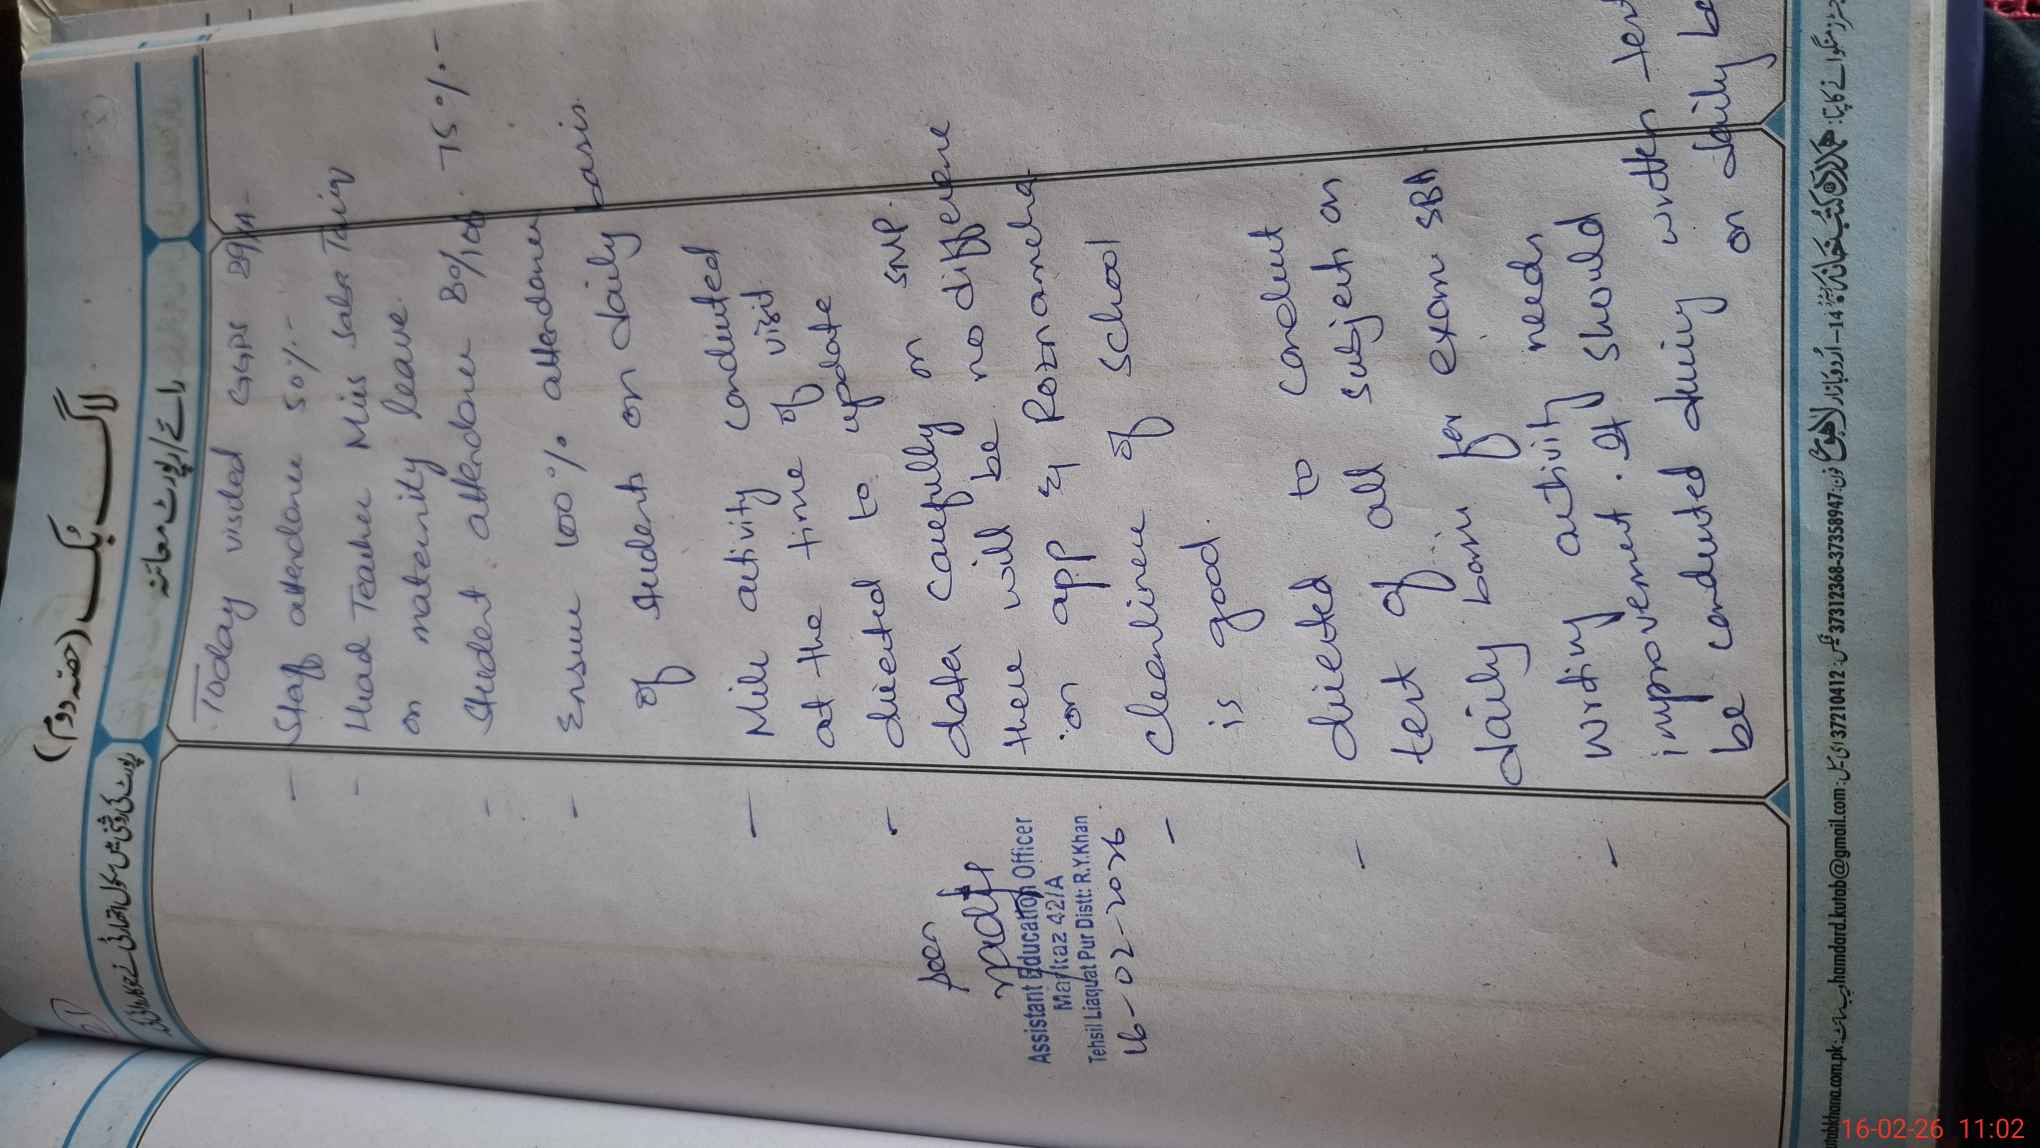 لاگ بک (حصہ دوم)
رائے/رپورٹ معائنہ
Today visited GGPS 89/A-
- Staf attendane 50%-
- Head Teacher Miss Saba Tariq
on maternity leave.
- Student attendane 80%108. 75%-
- Ensure 100% attendane
of students on daily basis.
- Milk activity conducted
at the time of visit
- directed to update
data carefully on SMP.
there will be no differene
on app & Roznamcha
- Cleanliness of school
is good.
- directed to conduct
test of all subjects on
daily basis for exam SBA
- writing activity needs
improvement. It should
be conducted during written test
on daily be
seen
Assistant Education Officer
Markaz 42/A
Tehsil Liaquat Pur Distt: R.Y.Khan
16-02-2026
37210412 37312368-37358947 hamdard.kutab@gmail.com
16-02-26 11:02